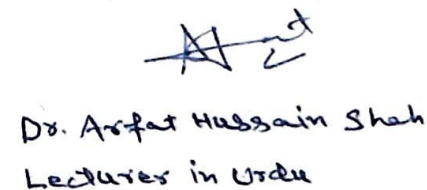 Dr. Arfat Hussain Shah
Lecturer in Urdu